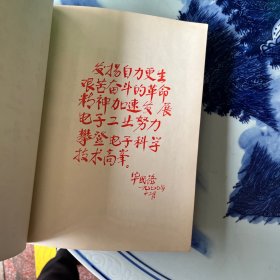 发扬自力更生
艰苦奋斗的革命
精神加速发展
电子工业努力
攀登电子科学
技术高峯。
一九七〇年